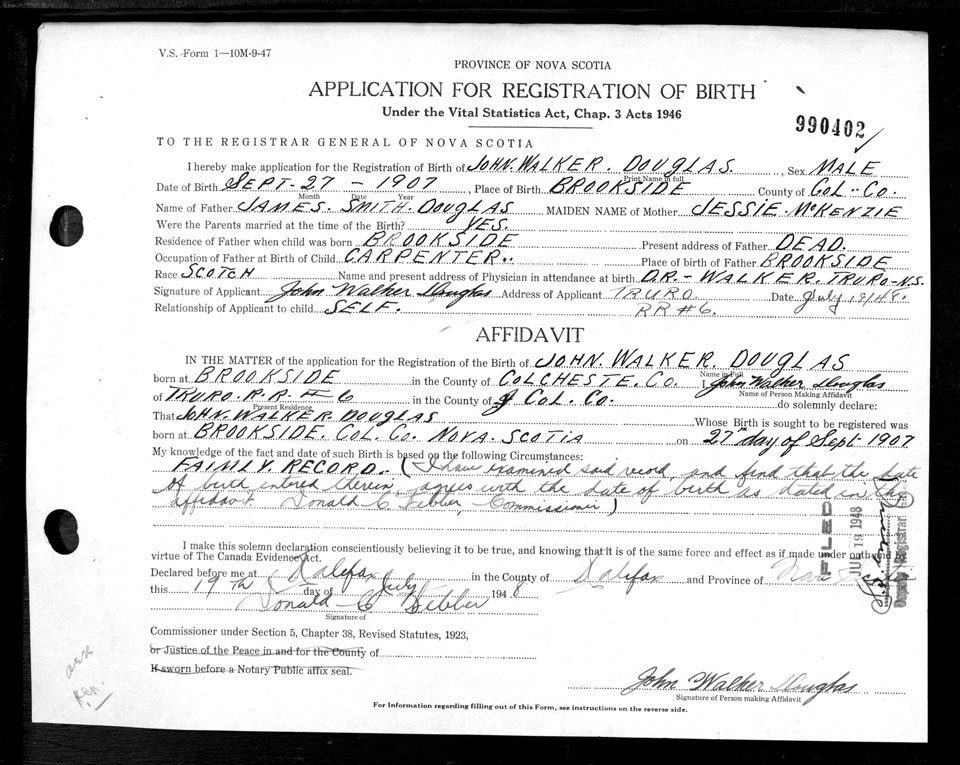 V.S. Form 1—10M-9-47
PROVINCE OF NOVA SCOTIA
APPLICATION FOR REGISTRATION OF BIRTH
Under the Vital Statistics Act, Chap. 3 Acts 1946
990402
TO THE REGISTRAR GENERAL OF NOVA SCOTIA
I hereby make application for the Registration of Birth of JOHN. WALKER. DOUGLAS. Sex MALE
Print Name in full
Date of Birth SEPT-27-1907, Place of Birth BROOKSIDE County of COL.. CO.
Month Date Year
Name of Father JAMES. SMITH. DOUGLAS MAIDEN NAME of Mother JESSIE McKENZIE
Were the Parents married at the time of the Birth? YES.
Residence of Father when child was born BROOKSIDE Present address of Father DEAD.
Occupation of Father at Birth of Child CARPENTER.. Place of birth of Father BROOKSIDE
Race SCOTCH Name and present address of Physician in attendance at birth DR.- WALKER. TRURO-N.S.
Signature of Applicant John Walker Douglas Address of Applicant TRURO. Date July 19/48.
Relationship of Applicant to child SELF. RR #6.
AFFIDAVIT
IN THE MATTER of the application for the Registration of the Birth of JOHN. WALKER. DOUGLAS
Name in Full
born at BROOKSIDE in the County of COLCHESTE. CO. I, John Walker Douglas
Name of Person Making Affidavit
of TRURO. R.R. #6 in the County of COL. CO. do solemnly declare:
Present Residence
That JOHN. WALKER. DOUGLAS Whose Birth is sought to be registered was
born at BROOKSIDE. COL. CO. NOVA. SCOTIA on 27th day of Sept 1907
My knowledge of the fact and date of such Birth is based on the following Circumstances:
FAIMLY. RECORD. (I have examined said record, and find that the date
of birth entered therein, agrees with the date of birth as stated in this
affidavit. Donald C Webber, Commissioner)
FILED
JUL 19 1948
Deputy Registrar
I make this solemn declaration conscientiously believing it to be true, and knowing that it is of the same force and effect as if made under oath and by
virtue of The Canada Evidence Act.
Declared before me at Halifax in the County of Halifax and Province of Nova Scotia
this 19th day of July 1948
Donald C Webber
Signature of
Commissioner under Section 5, Chapter 38, Revised Statutes, 1923,
or Justice of the Peace in and for the County of
If sworn before a Notary Public affix seal.
John Walker Douglas
Signature of Person making Affidavit
For Information regarding filling out of this Form, see instructions on the reverse side.